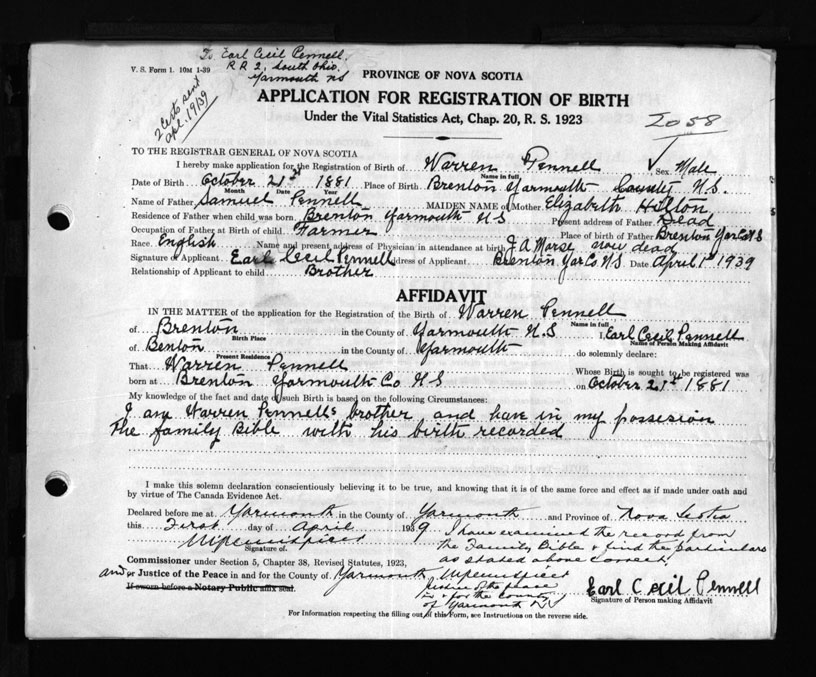 To Earl Cecil Pennell.
R R 2, South Ohio.
Yarmouth NS
V. S. Form 1. 10M 1-39
2 Certs sent
apl. 19/39
PROVINCE OF NOVA SCOTIA
APPLICATION FOR REGISTRATION OF BIRTH
Under the Vital Statistics Act, Chap. 20, R. S. 1923
2058
TO THE REGISTRAR GENERAL OF NOVA SCOTIA
I hereby make application for the Registration of Birth of Warren Pennell Sex Male
Name in full
Date of Birth October 21st 1881 Place of Birth Brenton Yarmouth County N.S.
Month Date Year
Name of Father Samuel Pennell MAIDEN NAME of Mother Elizabeth Hilton
Residence of Father when child was born. Brenton Yarmouth N S Present address of Father Dead
Occupation of Father at Birth of child Farmer Place of birth of Father Brenton Yar Co NS
Race. English Name and present address of Physician in attendance at birth J. A Morse now dead
Signature of Applicant Earl Cecil Pennell Address of Applicant Brenton Yar Co. N.S. Date April 1st 1939
Relationship of Applicant to child Brother
AFFIDAVIT
IN THE MATTER of the application for the Registration of the Birth of Warren Pennell
Name in full
of Brenton in the County of Yarmouth N.S I, Earl Cecil Pennell
Birth Place Name of Person Making Affidavit
of Benton in the County of Yarmouth do solemnly declare:
Present Residence
That Warren Pennell Whose Birth is sought to be registered was
born at Brenton Yarmouth Co N S on October 21st 1881
My knowledge of the fact and date of such Birth is based on the following Circumstances:
I am Warren Pennells brother and have in my possesion
The family Bible with his birth recorded
I make this solemn declaration conscientiously believing it to be true, and knowing that it is of the same force and effect as if made under oath and
by virtue of The Canada Evidence Act.
Declared before me at Yarmouth in the County of Yarmouth and Province of Nova Scotia
this First day of April 1939 I have examined the record from
the Family Bible & find the particulars
as stated above correct.
Signature of.
Commissioner under Section 5, Chapter 38, Revised Statutes, 1923,
and or Justice of the Peace in and for the County of Yarmouth
Justice of the peace
in & for the county
of Yarmouth N S
If sworn before a Notary Public affix seal.
Earl Cecil Pennell
Signature of Person making Affidavit
For Information respecting the filling out of this Form, see Instructions on the reverse side.